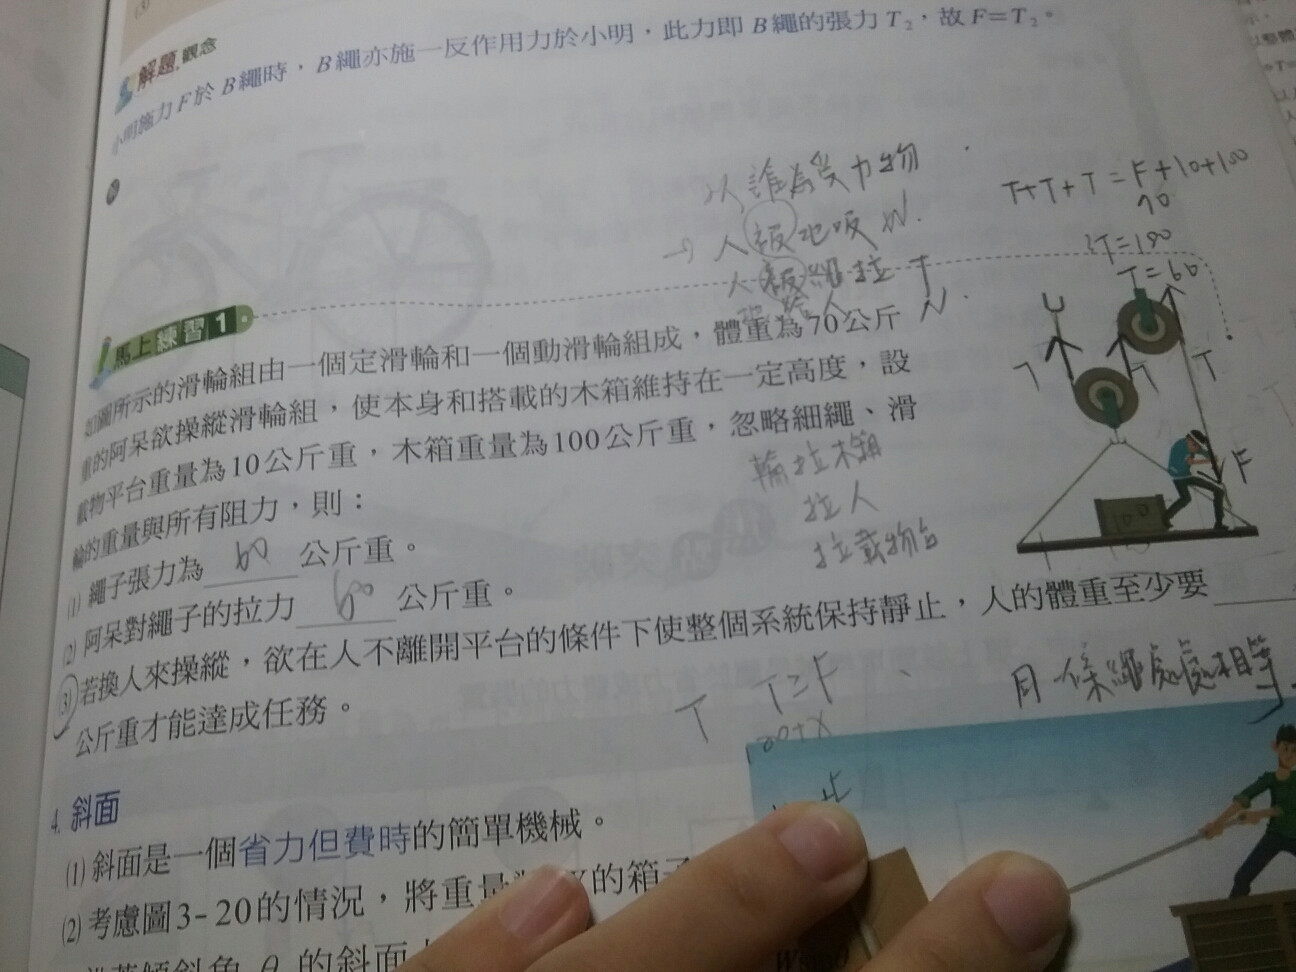 解題觀念
小明施力F於B繩時，B繩亦施一反作用力於小明，此力即B繩的張力T₂，故F=T₂。
以誰為受力物
→ 人被地吸 W.
人被繩拉 T
N.
T+T+T=F+10+100
70
3T=180
T=60
馬上練習1
如圖所示的滑輪組由一個定滑輪和一個動滑輪組成，體重為70公斤
重的阿呆欲操縱滑輪組，使本身和搭載的木箱維持在一定高度，設
載物平台重量為10公斤重，木箱重量為100公斤重，忽略細繩、滑
輪的重量與所有阻力，則：
(1) 繩子張力為 60 公斤重。
(2) 阿呆對繩子的拉力 60 公斤重。
(3) 若換人來操縱，欲在人不離開平台的條件下使整個系統保持靜止，人的體重至少要
公斤重才能達成任務。
T T T
F
100
輪拉木箱
拉人
拉載物台
T T=F
100+X
同條繩處處相等
4. 斜面
(1) 斜面是一個省力但費時的簡單機械。
(2) 考慮圖3-20的情況，將重量為 的箱子
θ的斜面